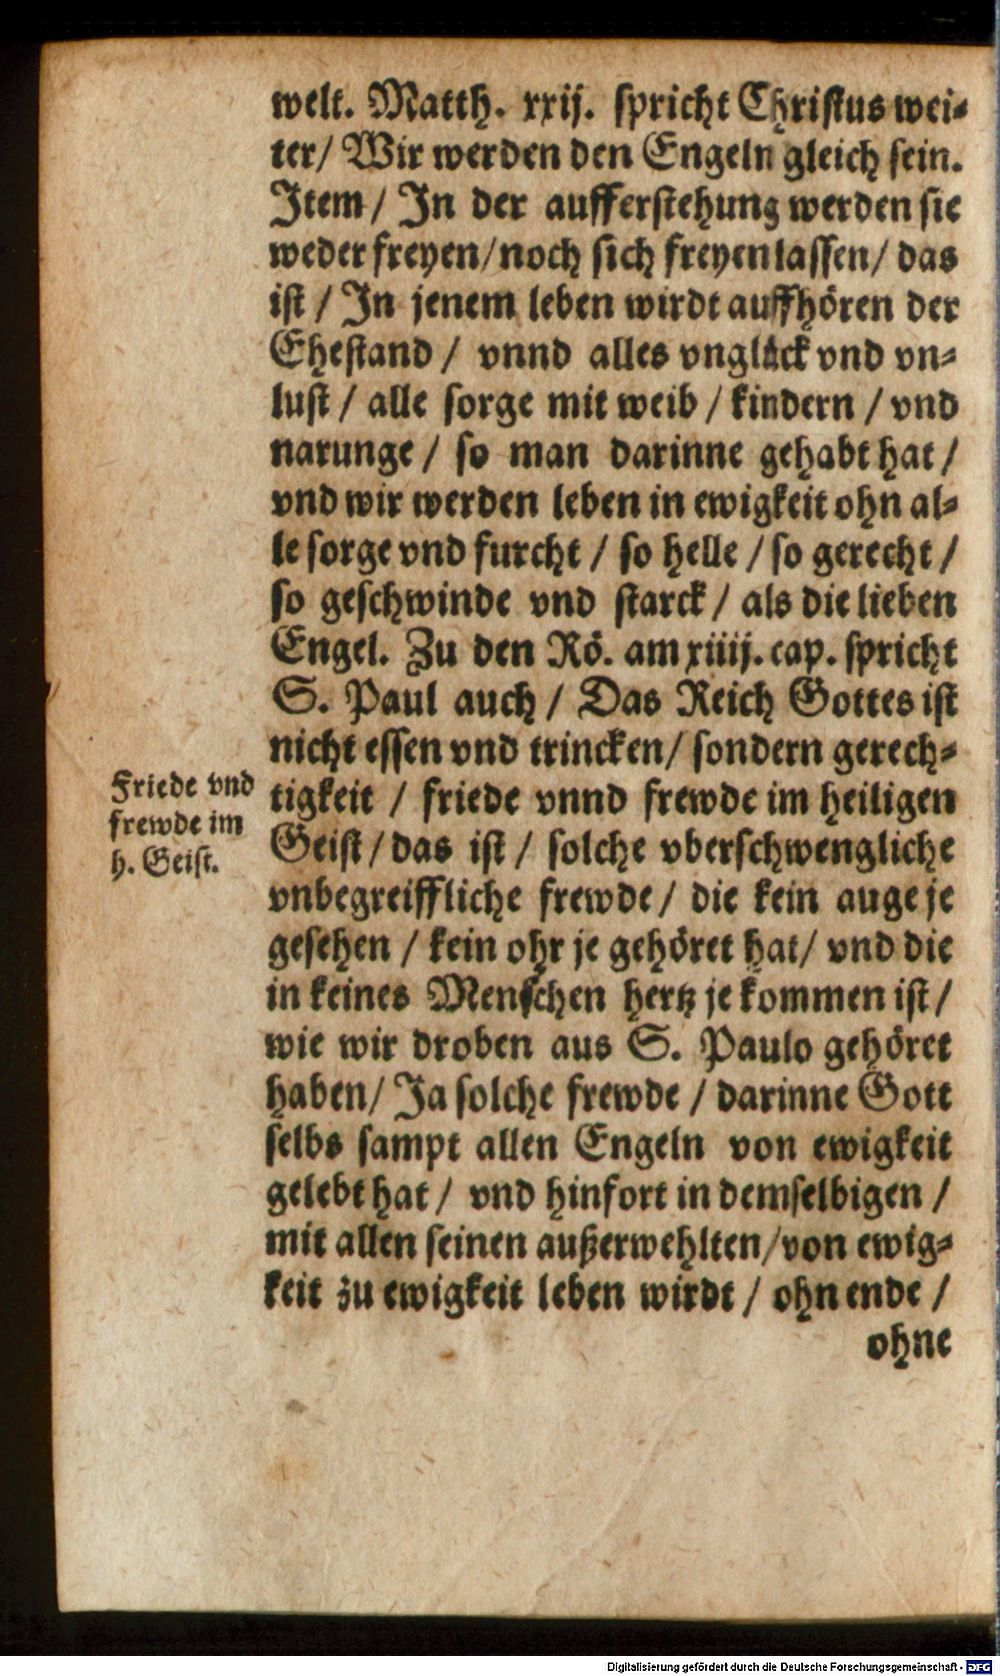 welt. Matth. xxij. spricht Christus wei-
ter/ Wir werden den Engeln gleich sein.
Item/ In der aufferstehung werden sie
weder freyen/ noch sich freyen lassen/ das
ist / In jenem leben wirdt auffhören der
Ehestand / vnnd alles vnglück vnd vn-
lust / alle sorge mit weib / kindern / vnd
narunge / so man darinne gehabt hat /
vnd wir werden leben in ewigkeit ohn al-
le sorge vnd furcht / so helle / so gerecht /
so geschwinde vnd starck / als die lieben
Engel. Zu den Rö. am xiiij. cap. spricht
S. Paul auch / Das Reich Gottes ist
nicht essen vnd trincken/ sondern gerech-
Friede vnd
frewde im
h. Geist.
tigkeit / friede vnnd frewde im heiligen
Geist / das ist / solche vberschwengliche
vnbegreiffliche frewde / die kein auge je
gesehen / kein ohr je gehöret hat/ vnd die
in keines Menschen hertz je kommen ist /
wie wir droben aus S. Paulo gehöret
haben/ Ja solche frewde / darinne Gott
selbs sampt allen Engeln von ewigkeit
gelebt hat / vnd hinfort in demselbigen /
mit allen seinen außerwehlten/ von ewig-
keit zu ewigkeit leben wirdt / ohn ende /
ohne
Digitalisierung gefördert durch die Deutsche Forschungsgemeinschaft - DFG